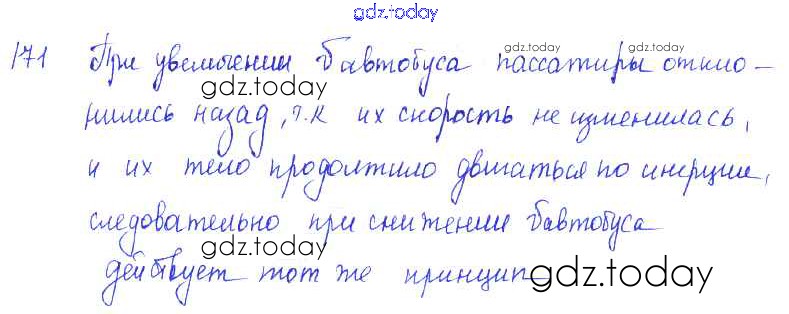 gdz.today
171 При увеличении υавтобуса пассажиры откло-
gdz.today
gdz.today
нились назад, т.к их скорость не изменилась,
gdz.today
и их тело продолжило двигаться по инерции,
следовательно при снижении υавтобуса
gdz.today
действует тот же принцип
gdz.today